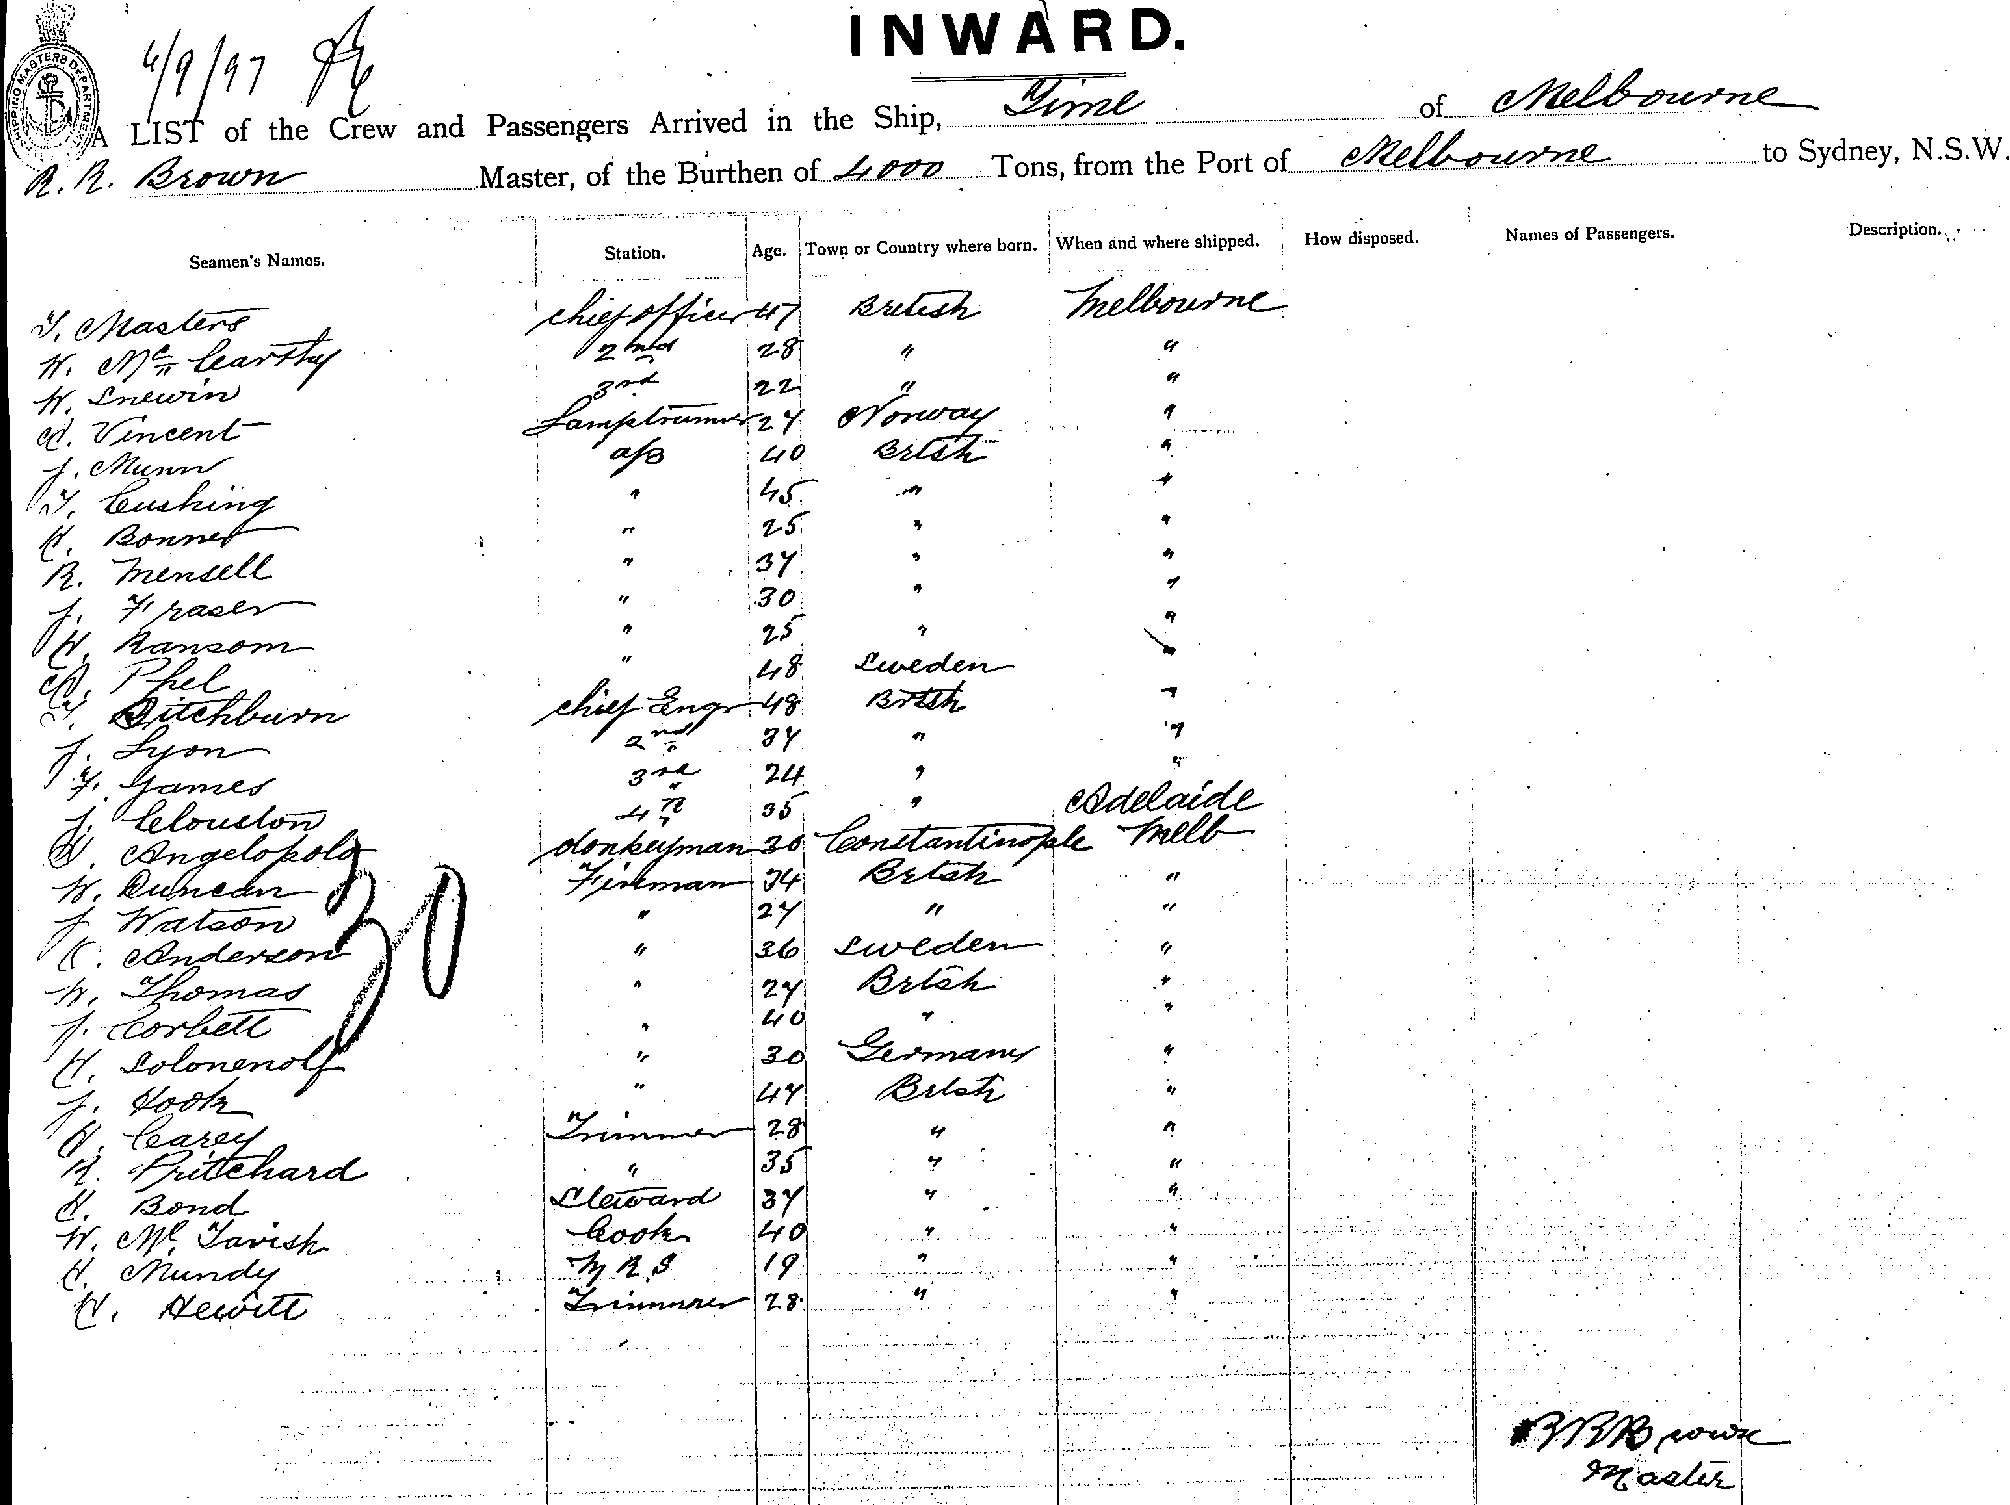 INWARD.
4/9/97
SHIPPING MASTERS DEPARTMENT
A LIST of the Crew and Passengers Arrived in the Ship, Time of Melbourne
R. R. Brown Master, of the Burthen of 4000 Tons, from the Port of Melbourne to Sydney, N.S.W.
Seamen's Names. Station. Age. Town or Country where born. When and where shipped. How disposed. Names of Passengers. Description.
T. Masters chief officer 47 British Melbourne
W. Mc Carthy 2nd 28 " "
W. Snewin 3rd 22 " "
A. Vincent Lamptrimmer 27 Norway "
J. Munn a/B 40 Brtsh "
T. Cushing " 45 " "
H. Bonner " 25 " "
R. Mensell " 37 " "
J. Fraser " 30 " "
H. Ransom " 25 " "
A. Phel " 48 Sweden "
T. Ditchburn chief Engr 48 Brtsh "
J. Lyon 2nd 37 " "
F. James 3rd 24 " "
J. Clouston 4th 35 " Adelaide
Angelopolo donkeyman 30 Constantinople Melb
W. Duncan Fireman 34 Brtsh "
J. Watson " 27 " "
C. Anderson " 36 Sweden "
W. Thomas " 27 Brtsh "
J. Corbett " 40 " "
H. Solonenolf " 30 Germany "
J. Hook " 47 Brtsh "
H. Carey Trimmer 28 " "
R. Pritchard " 35 " "
H. Bond Steward 37 " "
W. Mc Tavish Cook 40 " "
H. Mundy M R S 19 " "
H. Hewitt Trimmer 28 " "
30
R R Brown
Master